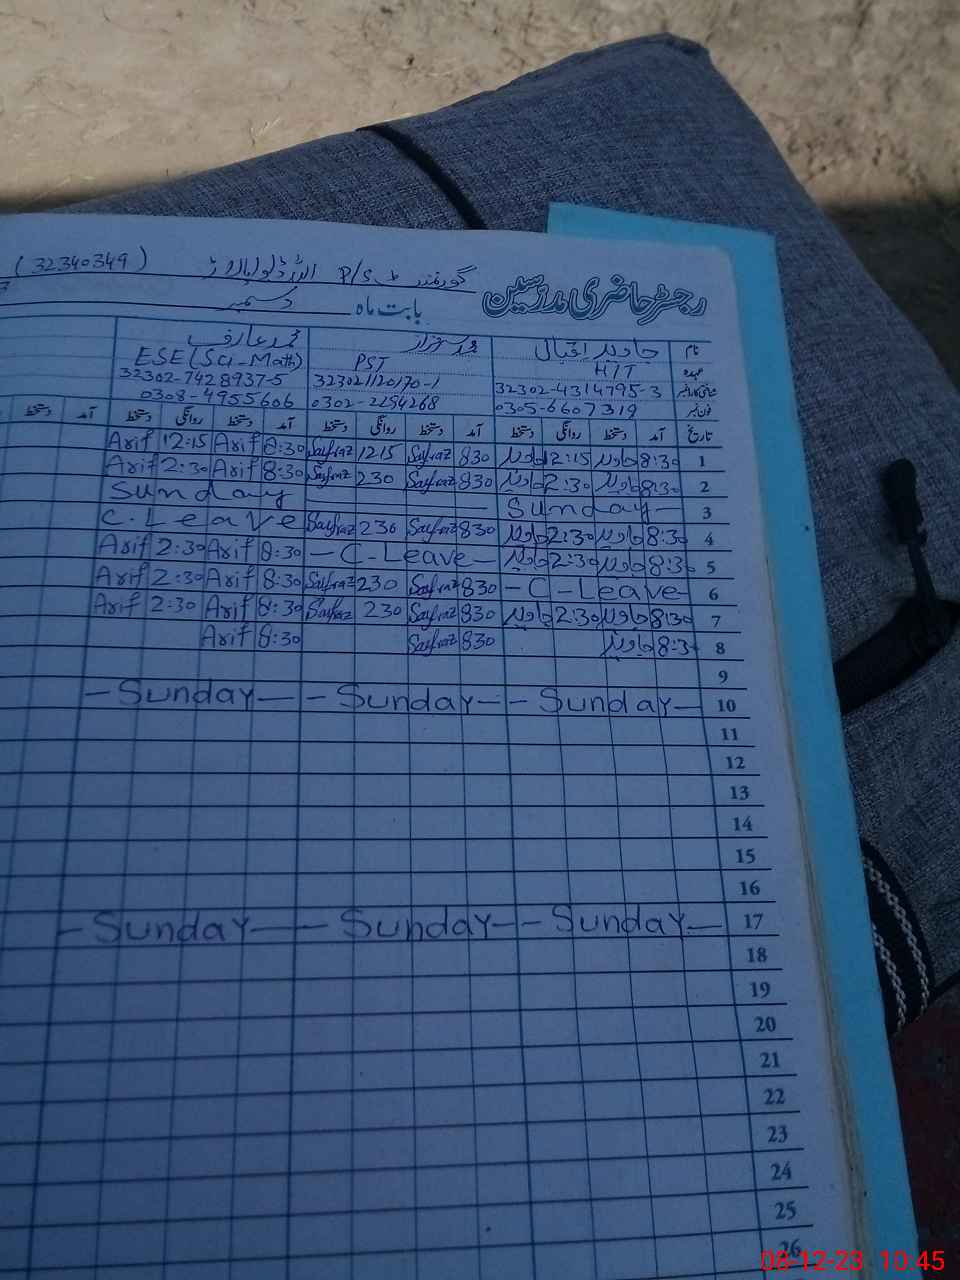 ( 32340349 ) P/S گورنمنٹ
رجسٹر حاضری مدرسین
بابت ماہ دسمبر
نام جاوید اقبال محمد سرفراز محمد عارف
عہدہ HTT PST ESE (Sci-Math)
شناختی کارڈ نمبر 32302-4314795-3 323021120170-1 32302-7428937-5
فون نمبر 0305-6607319 0302-2254268 0308-4955606
تاریخ آمد دستخط روانگی دستخط آمد دستخط روانگی دستخط آمد دستخط روانگی دستخط آمد دستخط
1 8:30 جاوید 12:15 جاوید 830 Sarfraz 1215 Sarfraz 8:30 Arif 12:15 Arif
2 8:30 جاوید 2:30 جاوید 830 Sarfraz 230 Sarfraz 8:30 Arif 2:30 Arif
3 Sunday Sunday
4 8:30 جاوید 2:30 جاوید 830 Sarfraz 230 Sarfraz C.Leave
5 8:30 جاوید 2:30 جاوید - C-Leave - 8:30 Arif 2:30 Arif
6 - C - Leave - 830 Sarfraz 230 Sarfraz 8:30 Arif 2:30 Arif
7 8:30 جاوید 2:30 جاوید 830 Sarfraz 230 Sarfraz 8:30 Arif 2:30 Arif
8 8:30 جاوید 830 Sarfraz 8:30 Arif
9
10 - Sunday - - Sunday - - Sunday -
11
12
13
14
15
16
17 - Sunday - - Sunday - - Sunday -
18
19
20
21
22
23
24
25
26
08-12-23 10:45